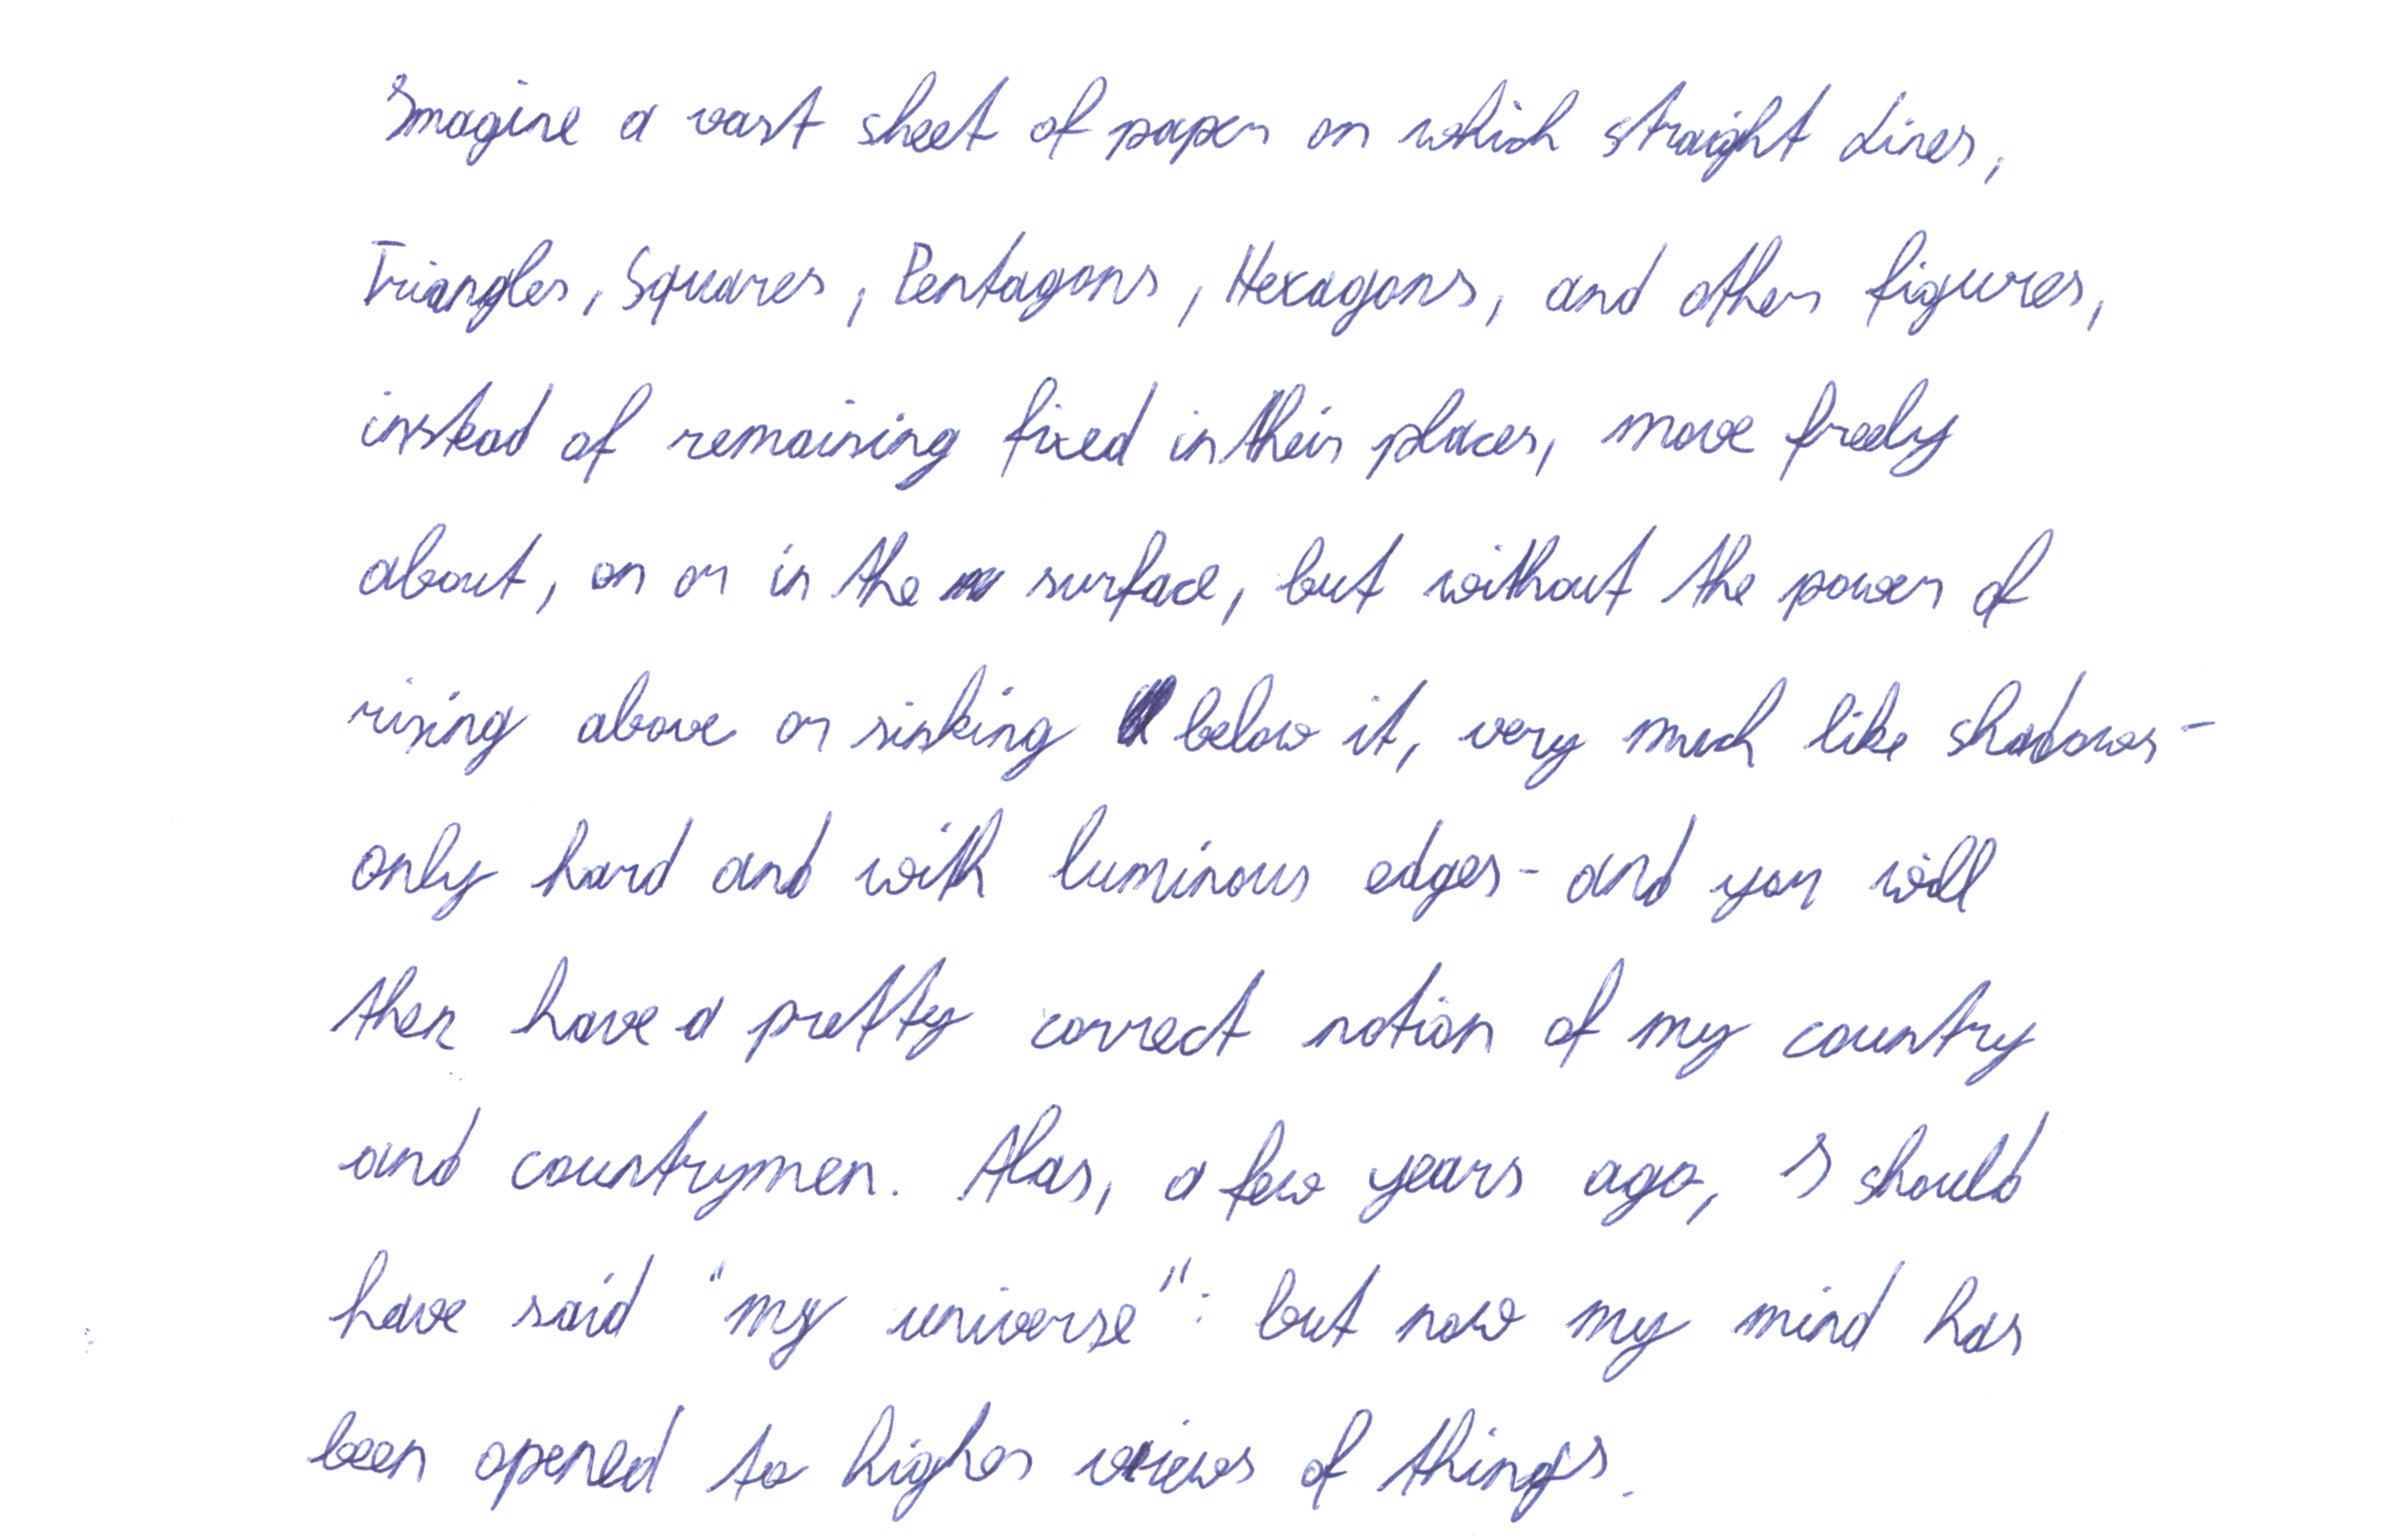 Imagine a vast sheet of paper on which straight Lines,
Triangles, Squares, Pentagons, Hexagons, and other figures,
instead of remaining fixed in their places, move freely
about, on or in the surface, but without the power of
rising above or sinking below it, very much like shadows -
only hard and with luminous edges - and you will
then have a pretty correct notion of my country
and countrymen. Alas, a few years ago, I should
have said "my universe": but now my mind has
been opened to higher views of things.